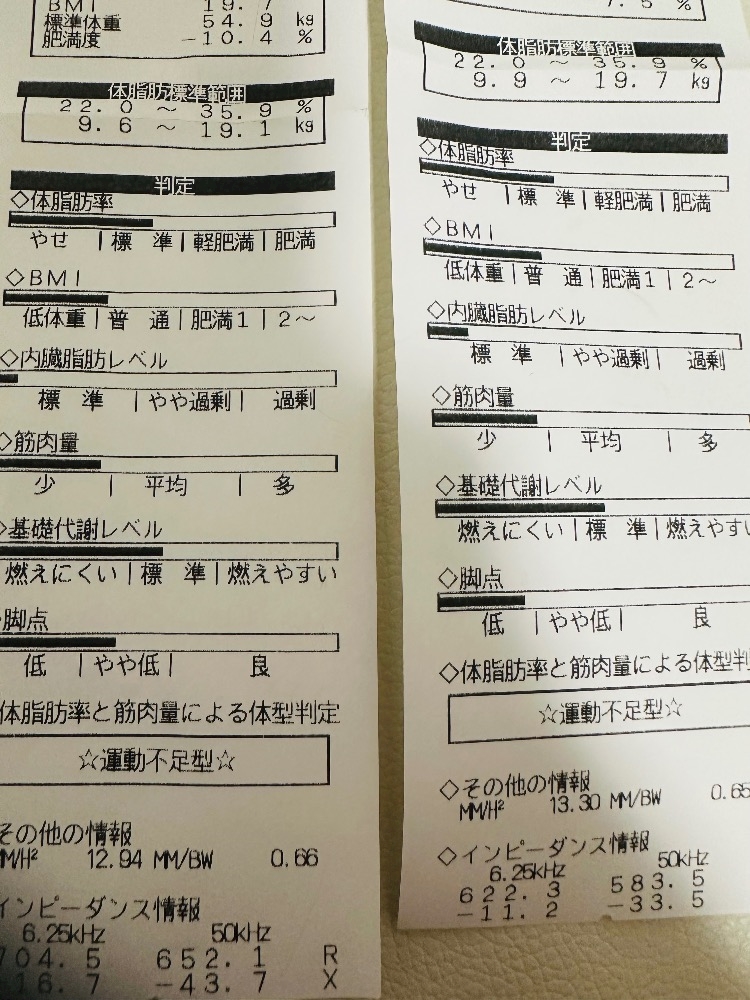 BMI 19.7
標準体重 54.9 kg
肥満度 -10.4 %
体脂肪標準範囲
22.0 ～ 35.9 %
9.6 ～ 19.1 kg
判定
◇体脂肪率
やせ |標 準|軽肥満|肥満
◇BMI
低体重|普 通|肥満1|2～
◇内臓脂肪レベル
標 準 |やや過剰| 過剰
◇筋肉量
少 | 平均 | 多
◇基礎代謝レベル
燃えにくい|標 準|燃えやすい
脚点
低 |やや低| 良
体脂肪率と筋肉量による体型判定
☆運動不足型☆
その他の情報
MM/H² 12.94 MM/BW 0.66
インピーダンス情報
6.25kHz 50kHz
704.5 652.1 R
16.7 -43.7 X
7.5 %
体脂肪標準範囲
22.0 ～ 35.9 %
9.9 ～ 19.7 kg
判定
◇体脂肪率
やせ |標 準|軽肥満|肥満
◇BMI
低体重|普 通|肥満1|2～
◇内臓脂肪レベル
標 準 |やや過剰| 過剰
◇筋肉量
少 | 平均 | 多
◇基礎代謝レベル
燃えにくい|標 準|燃えやすい
◇脚点
低 |やや低| 良
◇体脂肪率と筋肉量による体型判
☆運動不足型☆
◇その他の情報
MM/H² 13.30 MM/BW 0.65
◇インピーダンス情報
6.25kHz 50kHz
622.3 583.5
-11.2 -33.5